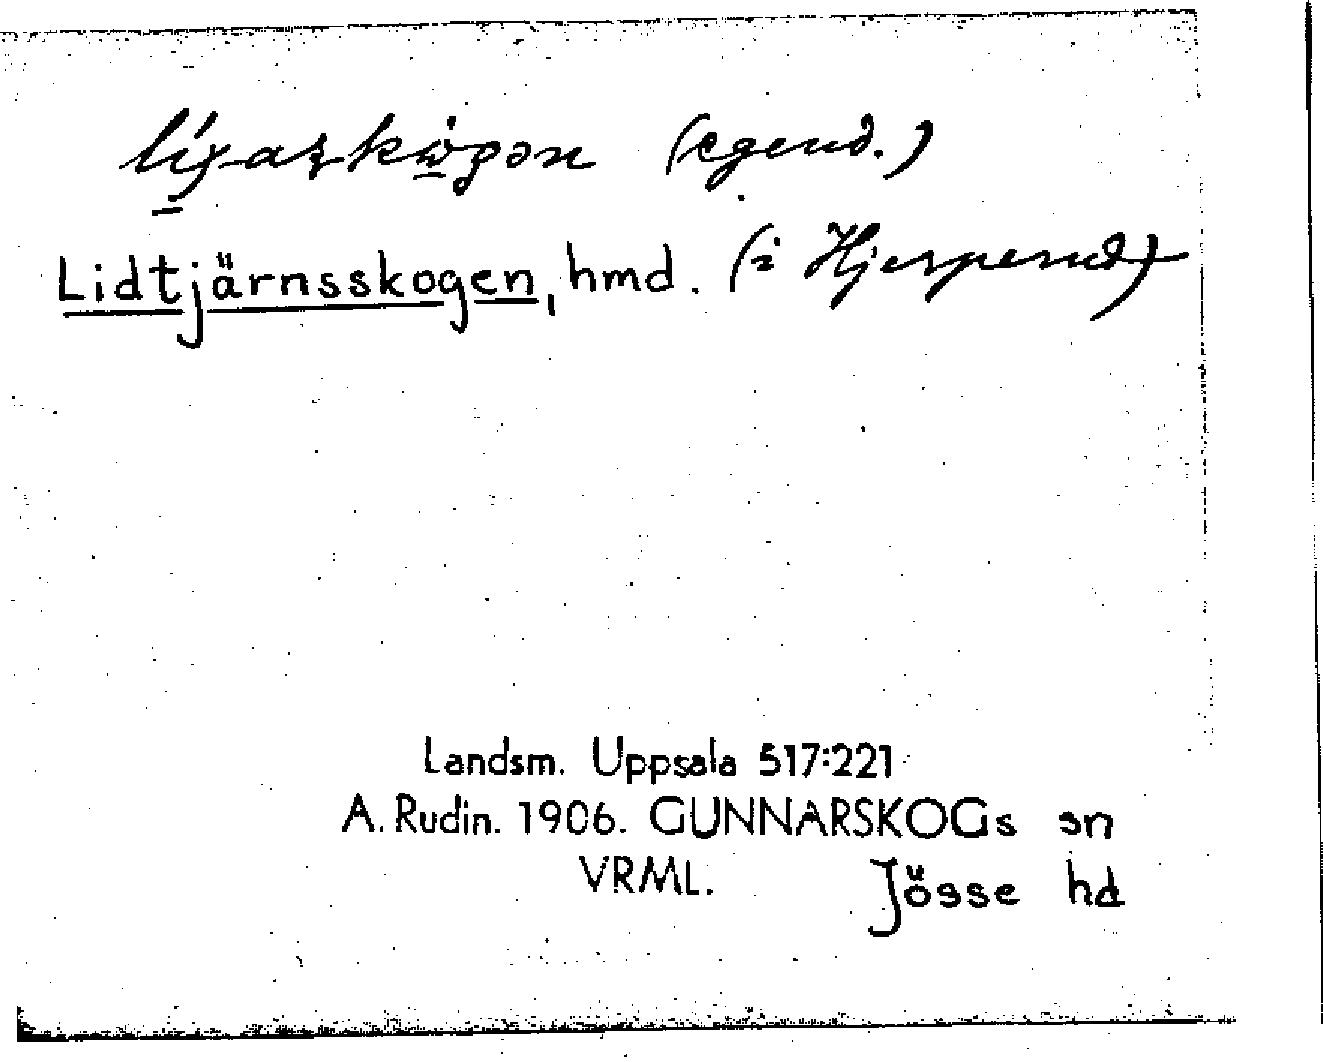 (egend.)
Lidtjärnsskogen, hmd. (i Hjerperud)
Landsm. Uppsala 517:221
A. Rudin. 1906. GUNNARSKOGs sn
VRML. Jösse hd